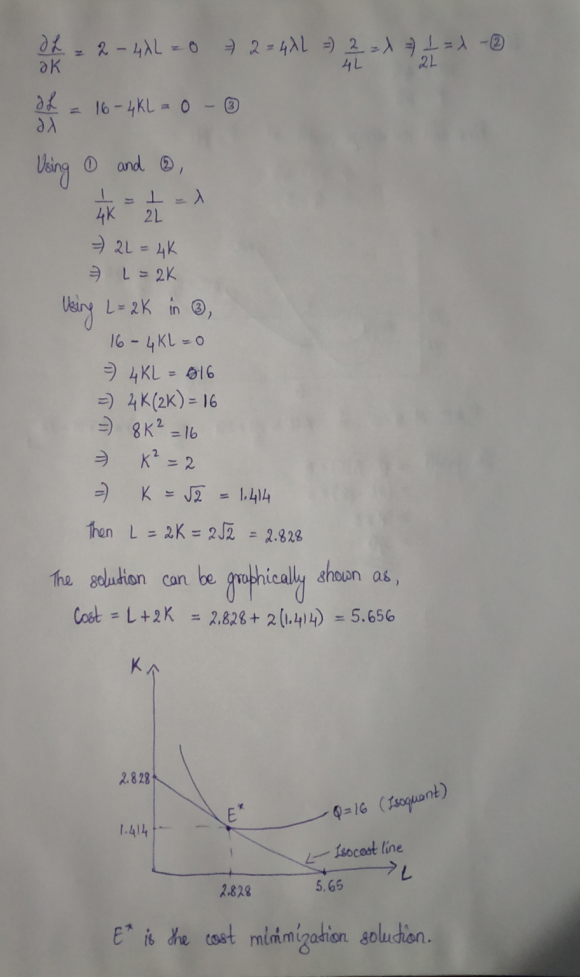 ∂ℒ/∂K = 2 - 4λL = 0 ⇒ 2 = 4λL ⇒ 2/4L = λ ⇒ 1/2L = λ - ②
∂ℒ/∂λ = 16 - 4KL = 0 - ③
Using ① and ②,
1/4K = 1/2L = λ
⇒ 2L = 4K
⇒ L = 2K
Using L = 2K in ③,
16 - 4KL = 0
⇒ 4KL = 16
⇒ 4K(2K) = 16
⇒ 8K² = 16
⇒ K² = 2
⇒ K = √2 = 1.414
Then L = 2K = 2√2 = 2.828
The solution can be graphically shown as,
Cost = L + 2K = 2.828 + 2(1.414) = 5.656
K
2.828
E*
Q=16 (Isoquant)
1.414
Isocost line
L
2.828 5.65
E* is the cost minimization solution.